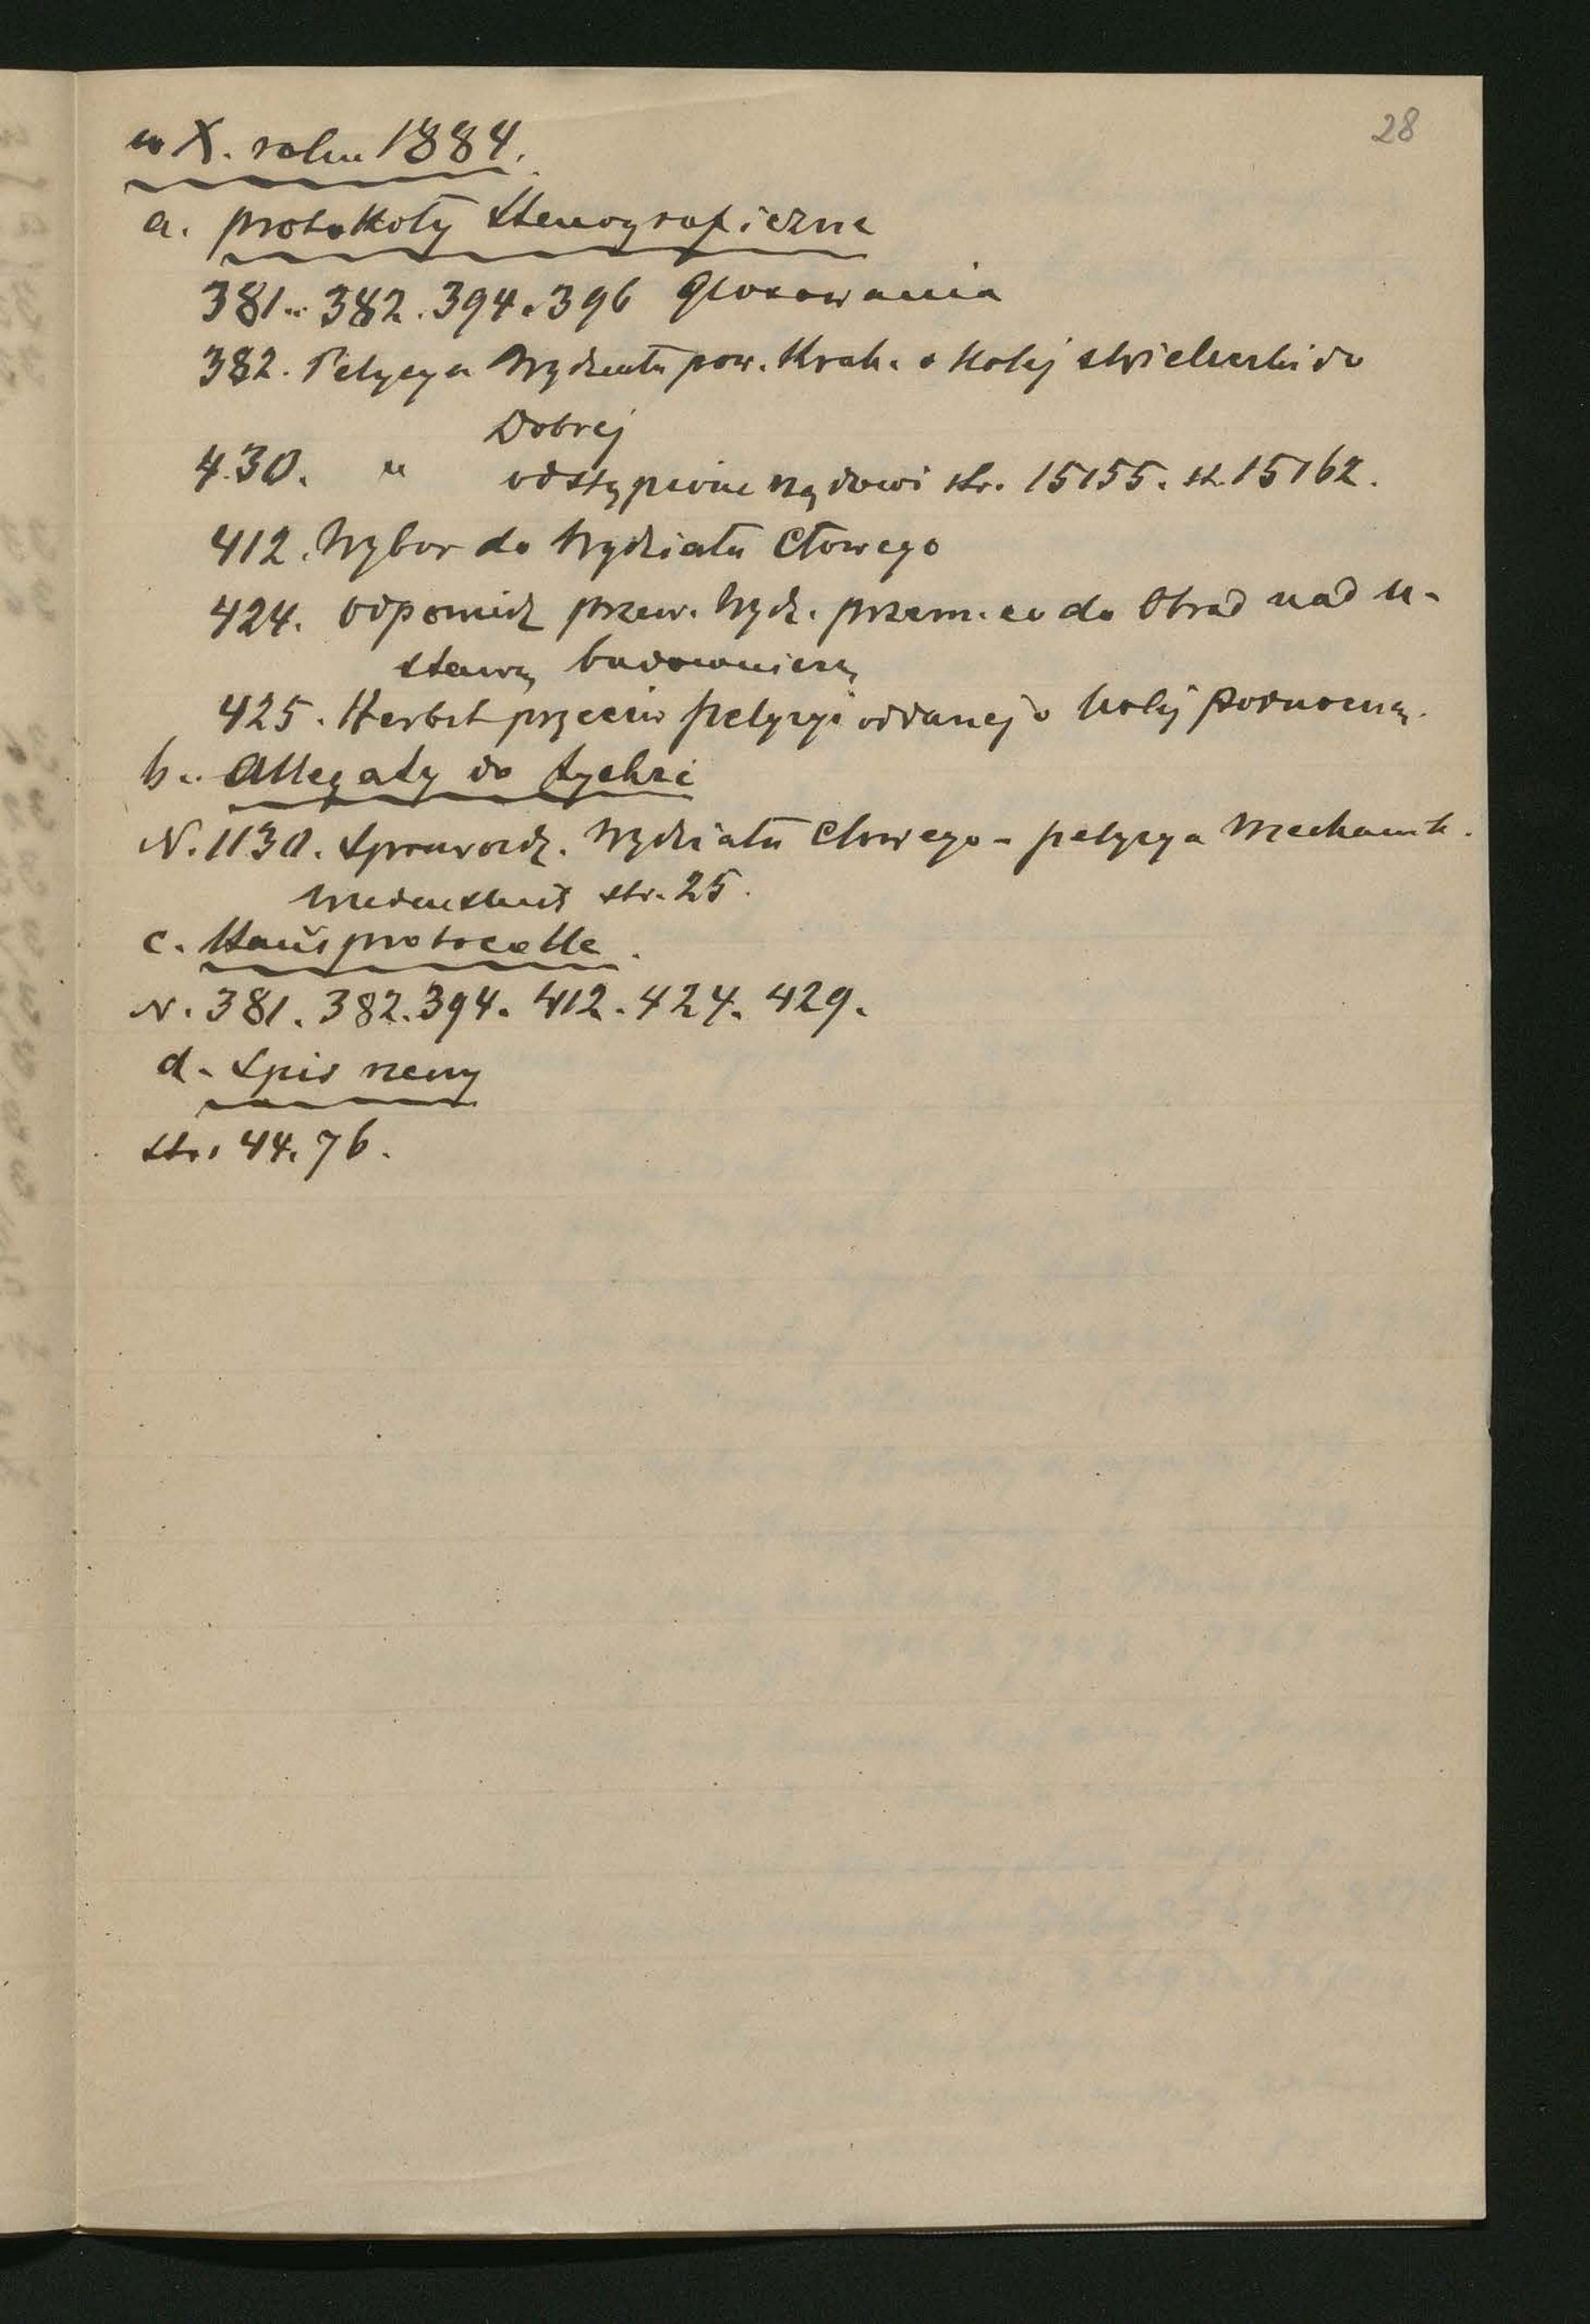 28
w X. roku 1884.
a. protokoły stenograficzne
381. 382. 394. 396 głosowania
382. Petycya Wydziału pow. Krak. o kolej z Wieliczki do
Dobrej
430. " odstąpione rządowi str. 15155. st. 15162.
412. Wybor do Wydziału Cłowego
424. odpowiedź przew. Wydz. przem. co do obrad nad u-
stawą budowniczą
425. Herbst przeciw petycyi oddanej o kolej północną.
b. Allegaty do tychże
N. 1130. Sprawozd. Wydziału Cłowego - petycya Mechanik.
str. 25.
c. Hausprotocolle.
N. 381. 382. 394. 412. 424. 429.
d. Spis rzeczy
str. 44. 76.